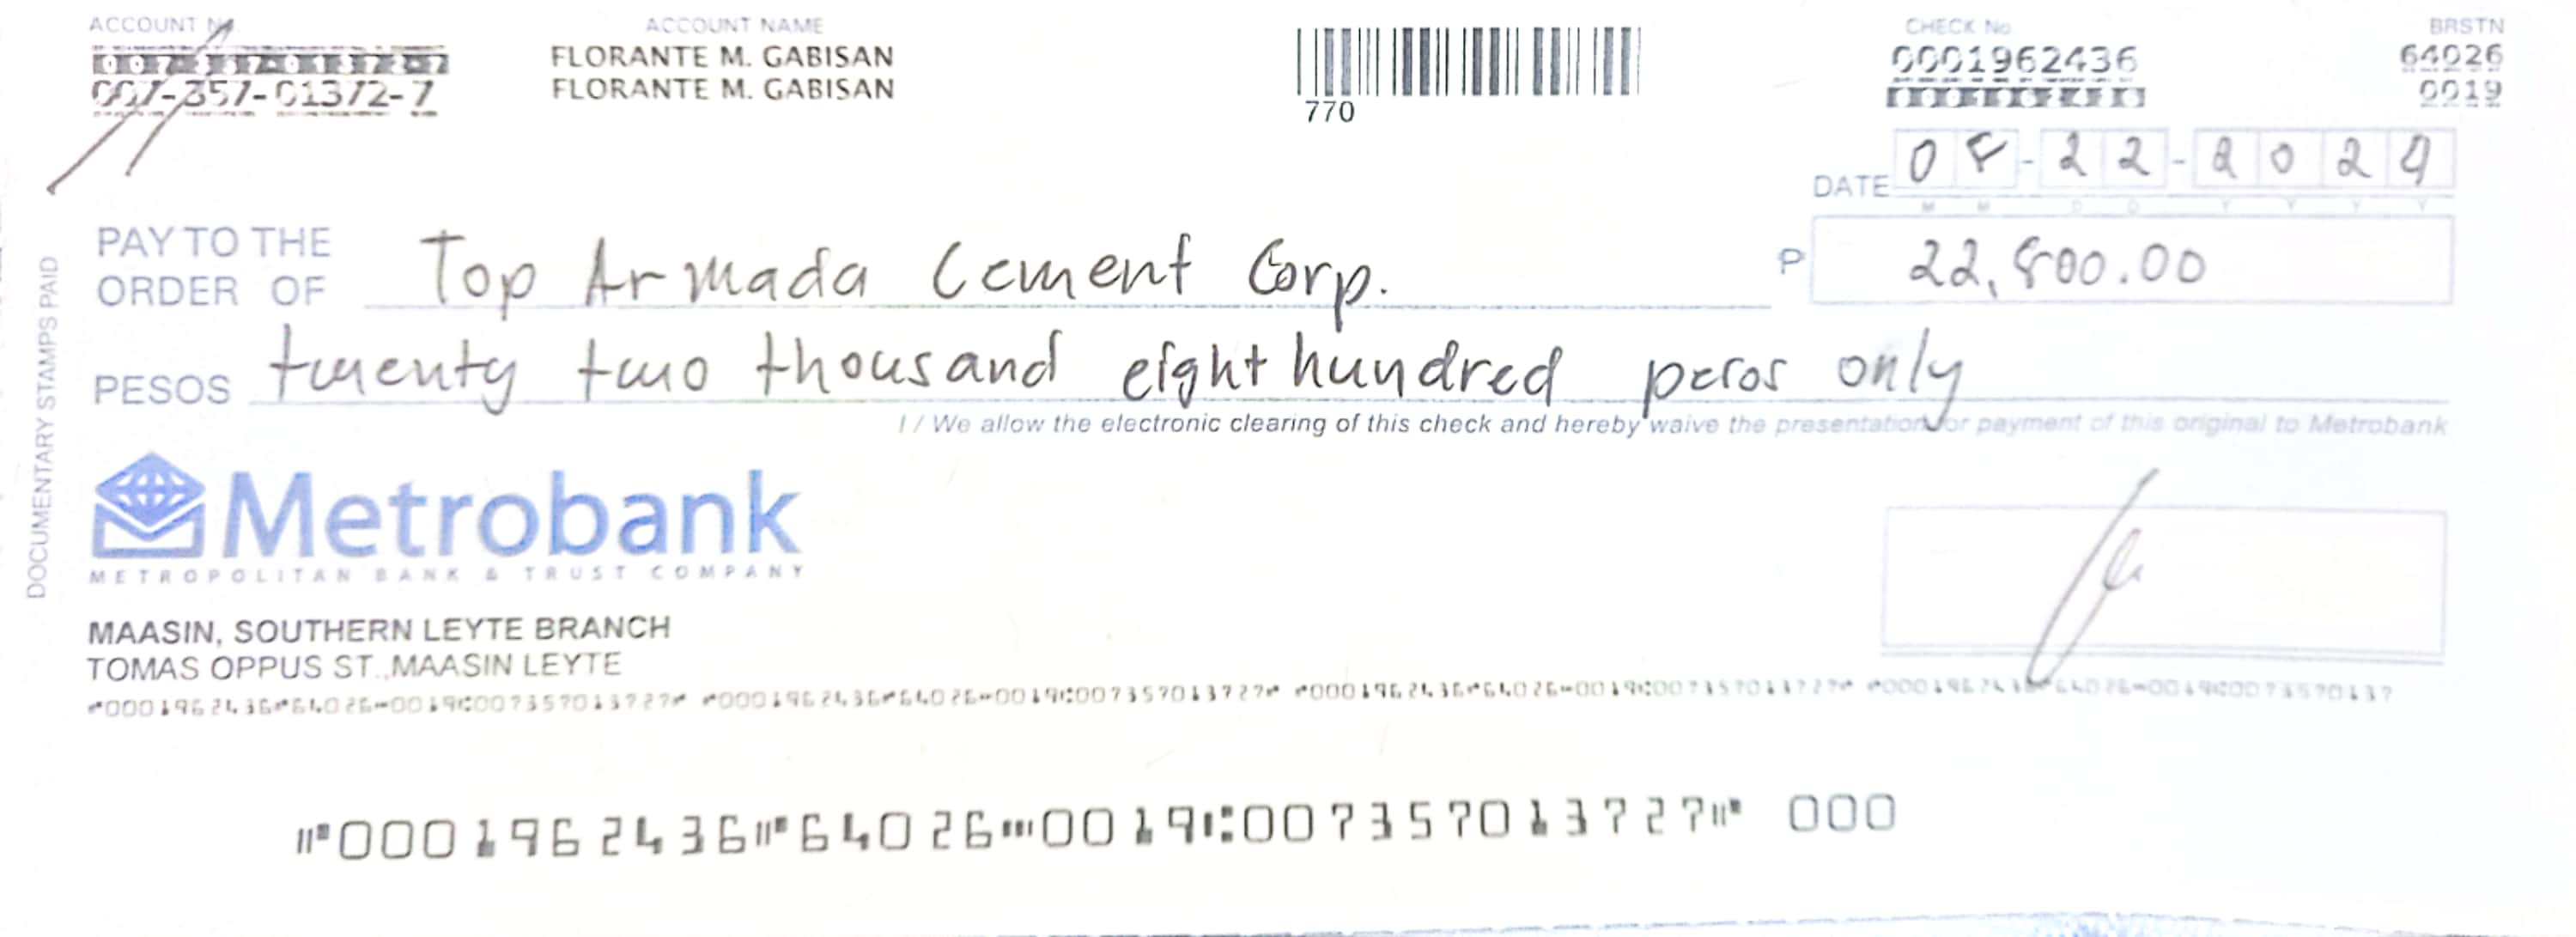 ACCOUNT No
ACCOUNT NAME
CHECK No
BRSTN
007-357-01372-7
FLORANTE M. GABISAN
FLORANTE M. GABISAN
770
0001962436
64026
0019
DATE 08-22-2024
M M D D Y Y Y Y
PAY TO THE ORDER OF Top Armada Cement Corp.
P 22,800.00
PESOS twenty two thousand eight hundred pesos only
I / We allow the electronic clearing of this check and hereby waive the presentation for payment of this original to Metrobank
DOCUMENTARY STAMPS PAID
Metrobank
METROPOLITAN BANK & TRUST COMPANY
MAASIN, SOUTHERN LEYTE BRANCH
TOMAS OPPUS ST.,MAASIN LEYTE
⑈0001962436⑈64026⑉0019⑆007357013727⑈ ⑈0001962436⑈64026⑉0019⑆007357013727⑈ ⑈0001962436⑈64026⑉0019⑆007357013727⑈ ⑈0001962436⑈64026⑉0019⑆0073570137
⑈0001962436⑈64026⑉0019⑆007357013727⑈ 000